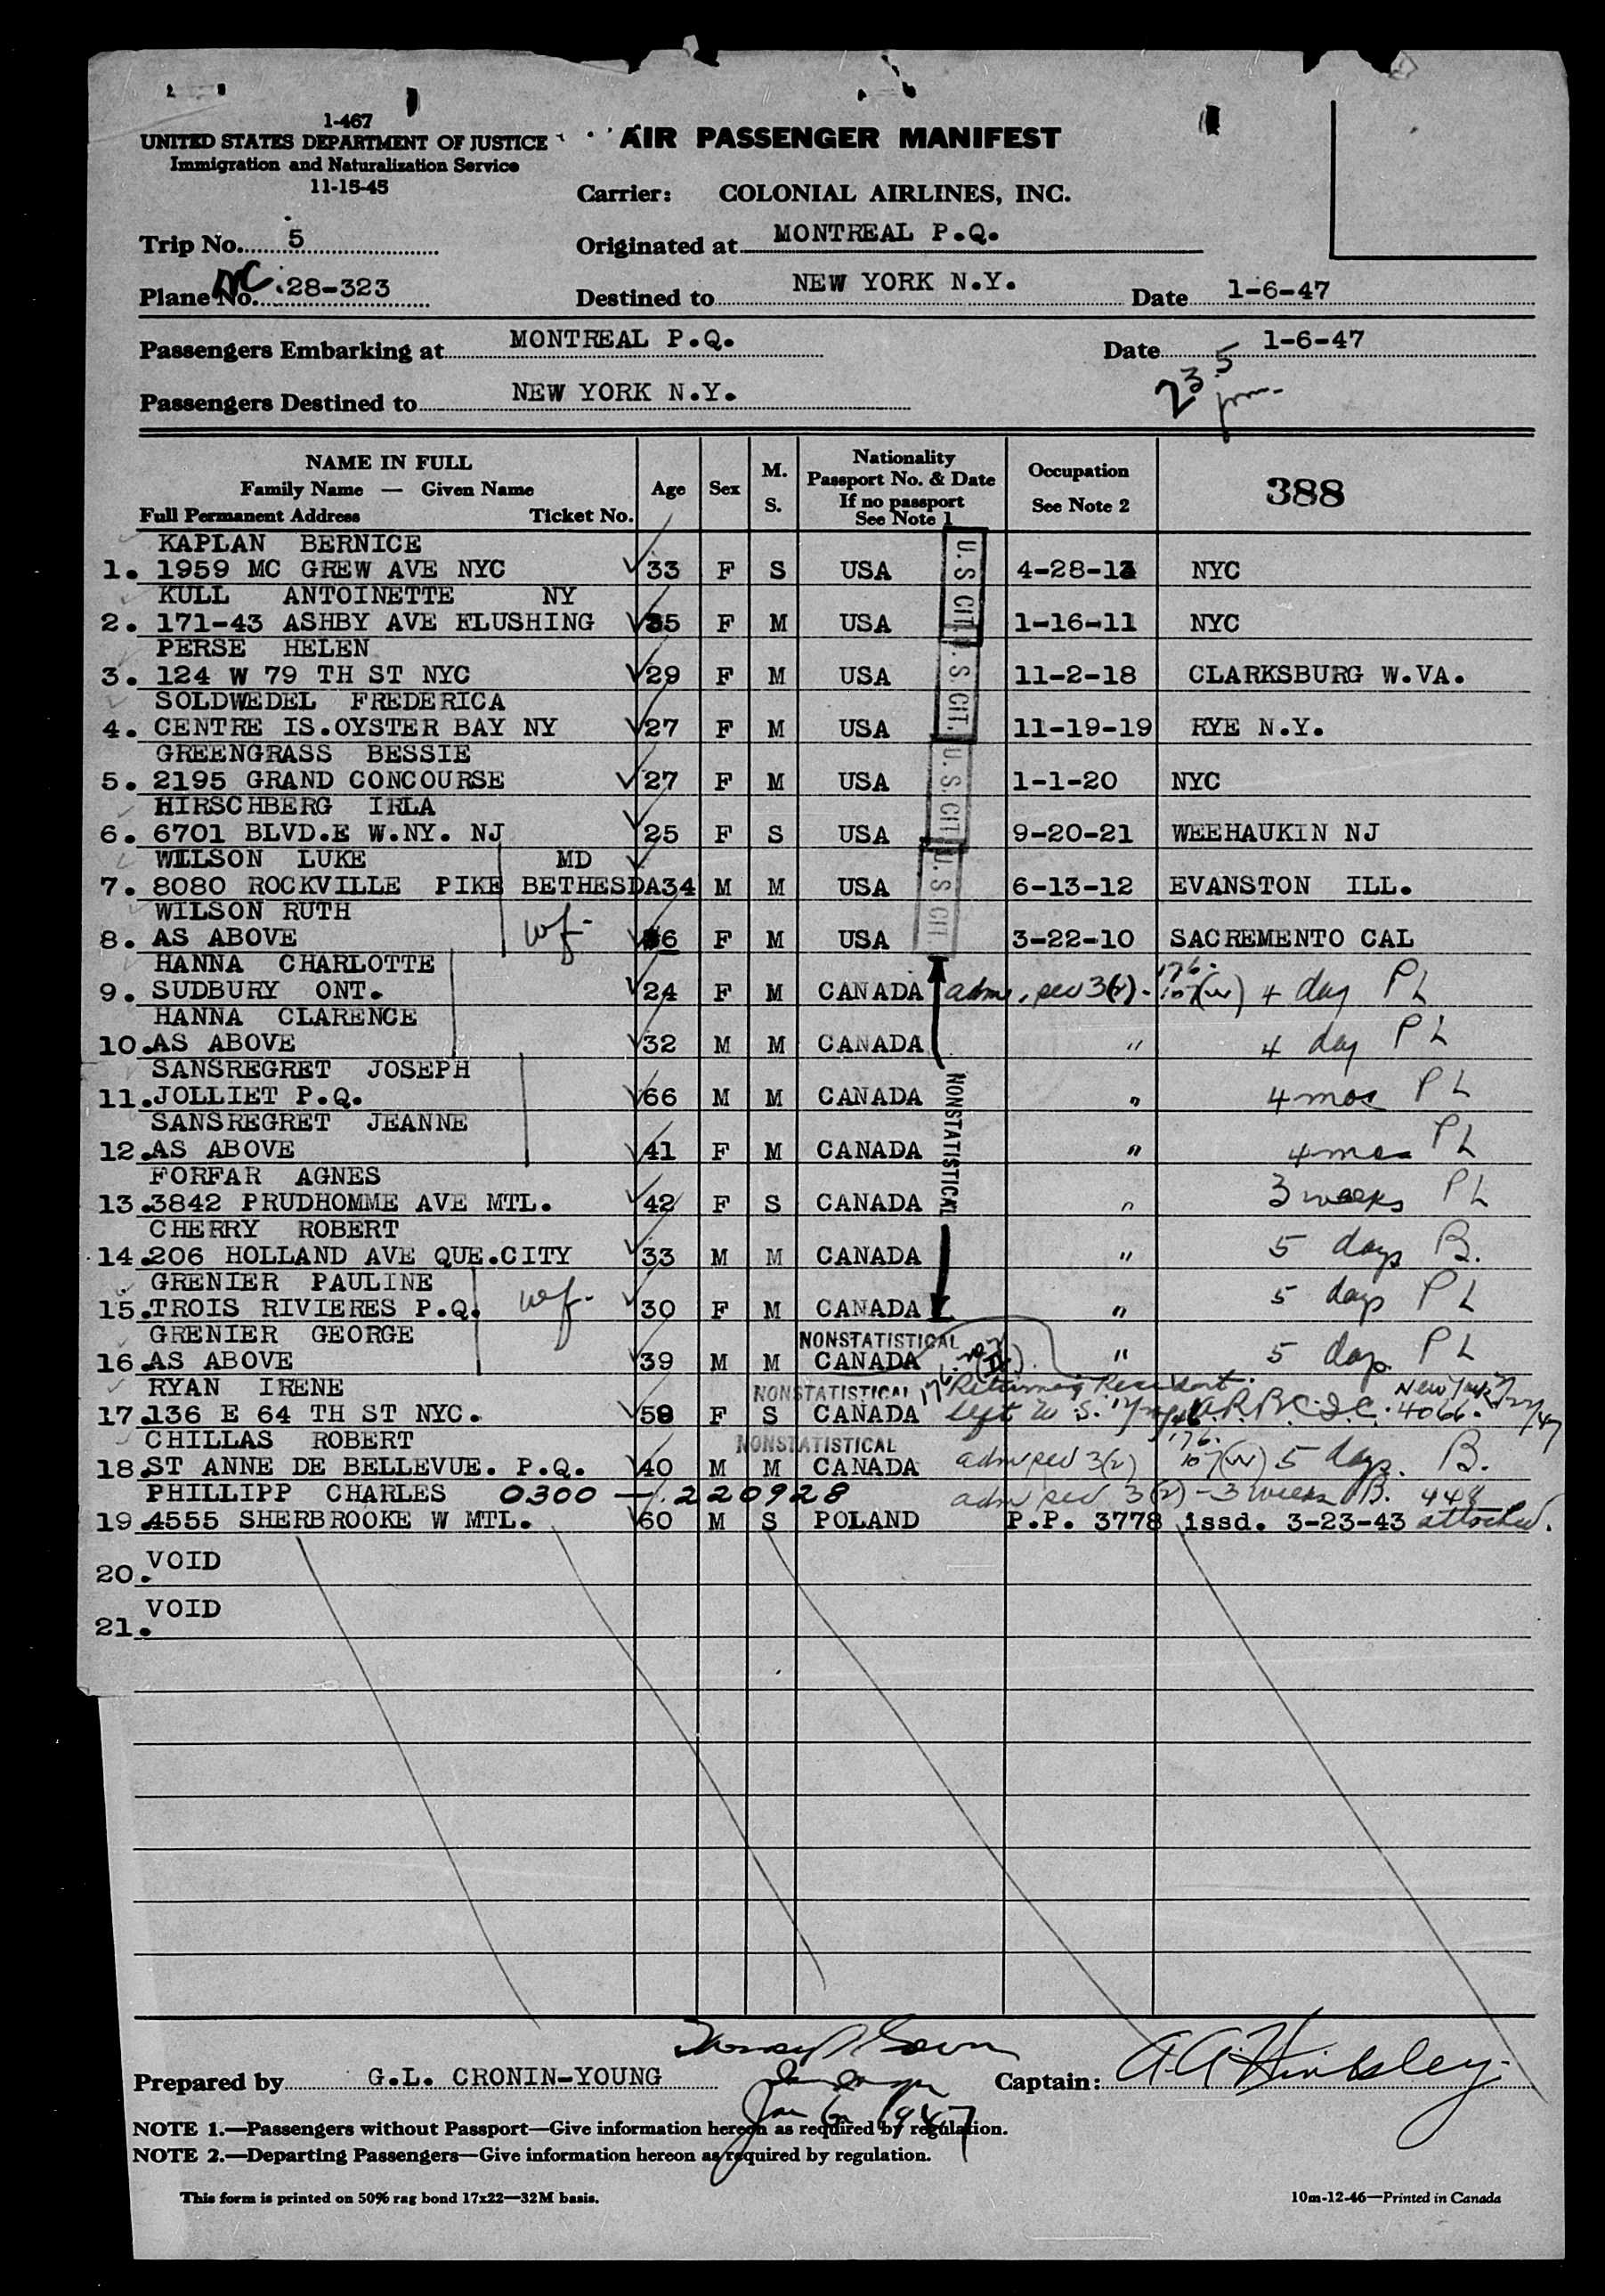 1-467
UNITED STATES DEPARTMENT OF JUSTICE
Immigration and Naturalization Service
11-15-45
AIR PASSENGER MANIFEST
Carrier: COLONIAL AIRLINES, INC.
Trip No. 5
Originated at MONTREAL P.Q.
Plane No. NC 28-323
Destined to NEW YORK N.Y. Date 1-6-47
Passengers Embarking at MONTREAL P.Q. Date 1-6-47
235 pm
Passengers Destined to NEW YORK N.Y.
NAME IN FULL
Family Name — Given Name
Full Permanent Address Ticket No.
Age
Sex
M. S.
Nationality
Passport No. & Date
If no passport
See Note 1
Occupation
See Note 2
388
KAPLAN BERNICE
1. 1959 MC GREW AVE NYC 33 F S USA U.S CIT. 4-28-13 NYC
KULL ANTOINETTE NY
2. 171-43 ASHBY AVE FLUSHING 35 F M USA 1-16-11 NYC
PERSE HELEN
3. 124 W 79 TH ST NYC 29 F M USA U. S CIT. 11-2-18 CLARKSBURG W.VA.
SOLDWEDEL FREDERICA
4. CENTRE IS.OYSTER BAY NY 27 F M USA 11-19-19 RYE N.Y.
GREENGRASS BESSIE
5. 2195 GRAND CONCOURSE 27 F M USA U. S. CIT 1-1-20 NYC
HIRSCHBERG IRLA
6. 6701 BLVD.E W.NY. NJ 25 F S USA 9-20-21 WEEHAUKIN NJ
WILSON LUKE MD
7. 8080 ROCKVILLE PIKE BETHESDA 34 M M USA U. S CIT. 6-13-12 EVANSTON ILL.
WILSON RUTH
8. AS ABOVE wf- 36 F M USA 3-22-10 SACREMENTO CAL
HANNA CHARLOTTE
9. SUDBURY ONT. 24 F M CANADA adm. sec 3(2) - 176. 107(w) 4 day PL
HANNA CLARENCE
10. AS ABOVE 32 M M CANADA " 4 day PL
SANSREGRET JOSEPH
11. JOLLIET P.Q. 66 M M CANADA NONSTATISTICAL " 4 mos PL
SANSREGRET JEANNE
12. AS ABOVE 41 F M CANADA " 4 mos PL
FORFAR AGNES
13. 3842 PRUDHOMME AVE MTL. 42 F S CANADA " 3 weeks PL
CHERRY ROBERT
14. 206 HOLLAND AVE QUE.CITY 33 M M CANADA " 5 days B.
GRENIER PAULINE
15. TROIS RIVIERES P.Q. wf- 30 F M CANADA " 5 days PL
GRENIER GEORGE NONSTATISTICAL
16. AS ABOVE 39 M M CANADA " 5 days PL
RYAN IRENE NONSTATISTICAL Returning Resident. New York
17. 136 E 64 TH ST NYC. 58 F S CANADA Left U.S. R.R.C. 4066.
CHILLAS ROBERT NONSTATISTICAL 176.
18. ST ANNE DE BELLEVUE. P.Q. 40 M M CANADA adm sec 3(2) 107(w) 5 days. B.
PHILLIPP CHARLES 0300 — 220928 adm sec 3(2) - 3 weeks B. 448
19. 4555 SHERBROOKE W MTL. 60 M S POLAND P.P. 3778 issd. 3-23-43 attached.
VOID
20.
VOID
21.
Prepared by G.L. CRONIN-YOUNG
Jan 6, 1947
Captain: A.A. Hinksley
NOTE 1.—Passengers without Passport—Give information hereon as required by regulation.
NOTE 2.—Departing Passengers—Give information hereon as required by regulation.
This form is printed on 50% rag bond 17x22—32M basis.
10m-12-46—Printed in Canada